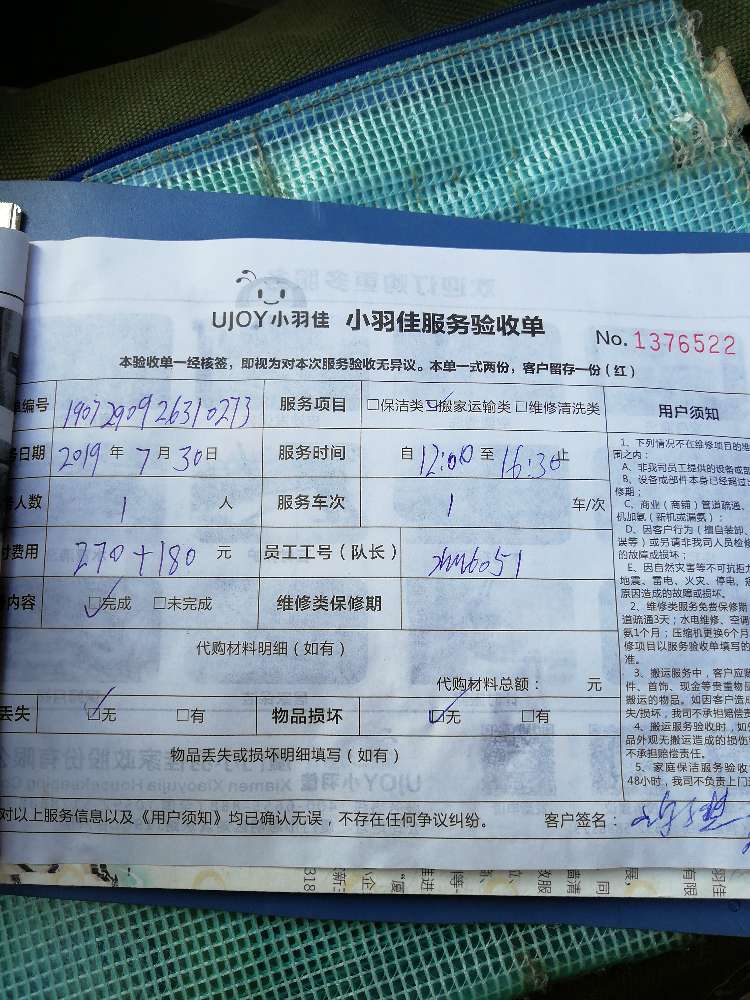 UJOY小羽佳 小羽佳服务验收单
No. 1376522
本验收单一经核签，即视为对本次服务验收无异议。本单一式两份，客户留存一份（红）
单编号 1907290926310273 服务项目 □保洁类 ☑搬家运输类 □维修清洗类
日期 2019 年 7 月 30 日 服务时间 自 12:00 至 16:30 止
人数 1 人 服务车次 1 车/次
付费用 270+180 元 员工工号（队长）
内容 ☑完成 □未完成 维修类保修期
代购材料明细（如有）
代购材料总额： 元
丢失 ☑无 □有 物品损坏 ☑无 □有
物品丢失或损坏明细填写（如有）
对以上服务信息以及《用户须知》均已确认无误，不存在任何争议纠纷。 客户签名：
用户须知
1、下列情况不在维修项目的
围之内：
A、非我司员工提供的设备或
B、设备或部件本身已经超过
修期；
C、商业（商铺）管道疏通、
机加氨（新机或漏氨）；
D、因客户行为（擅自装卸、
误等）或另请非我司人员检修
的故障或损坏；
E、因自然灾害等不可抗拒
地震、雷电、火灾、停电、
原因造成的故障或损坏。
2、维修类服务免费保修期
道疏通3天；水电维修、空调
氨1个月；压缩机更换6个月
修项目以服务验收单填写的
准。
3、搬运服务中，客户应
件、首饰、现金等贵重物
搬运的物品。如因客户造
失/损坏，我司不承担赔偿责
4、搬运服务验收时，如
品外观无搬运造成的损伤
不承担赔偿责任。
5、家庭保洁服务验收
48小时，我司不负责上门